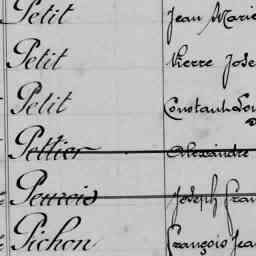 Petit Jean Marie
Petit Pierre Jose
Petit Constant Lou
Pettier Alexandre
Joseph Fran
Pichon François Jea